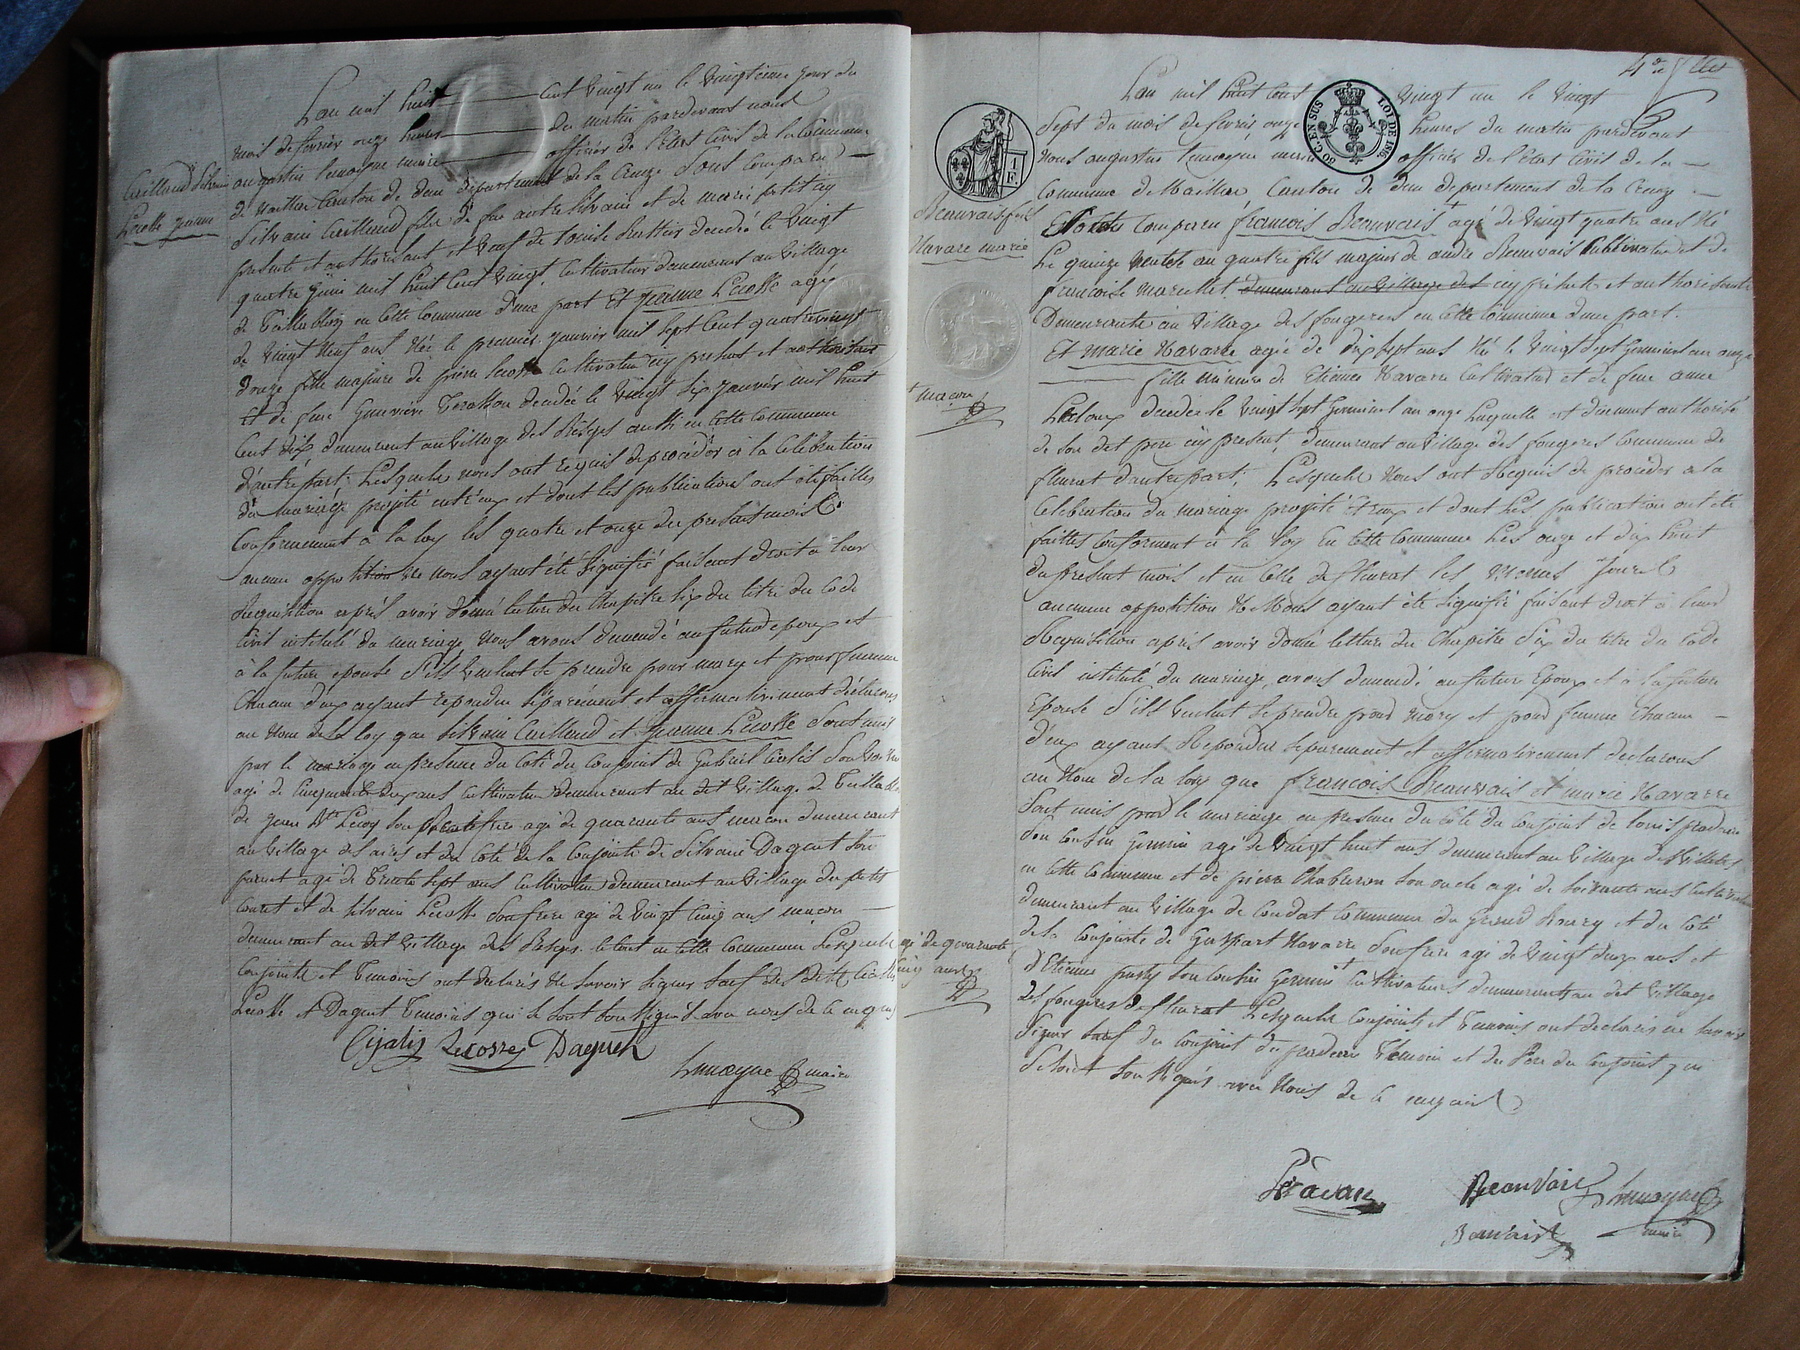 Caillaud Silvain
Lecolle jeanne
L'an mil huit cent vingt un le vingtieme jour du
mois de fevrier onze heures du matin pardevant nous
augustin lemoyne maire officier de l'état Civil de la Commune
de Maillac Canton de dun département de la Creuse Sont Comparu
Silvain Caillaud fils de feu autre Silvain et de marie petit icy
presente et authorisant et veuf de louise decedée le vingt
quatre juin mil huit Cent vingt, Cultivateur demeurant au village
de en cette Commune d'une part Et jeanne Lecolle agée
de vingt neuf ans Née le premier janvier mil sept Cent quatrevingt
douze fille majeure de pierre Cultivateur icy present et authorisant
et de feue decedée le vingt six janvier mil huit
Cent dix demeurant au village des aussi en cette Commune
d'autre part. Lesquels nous ont requis de procéder à la Celebration
du mariage projeté entr'eux et dont les publications ont été faittes
Conformement à la loy les quatre et onze du present mois
aucune opposition ne nous ayant été Signifié faisant droit à leur
Requisition après avoir donné lecture du Chapitre Six du titre du Code
Civil intitulé du mariage Nous avons demandé au futur epoux et
à la future epouse S'ils veulent se prendre pour mary et pour femme
Chacun d'eux ayant repondu Séparément et affirmativement déclarons
au Nom de la loy que Silvain Caillaud et Jeanne Lecolle Sont unis
par le mariage en presence du Coté du Conjoint de Gabriel Son
agé de Cinquante deux ans Cultivateur demeurant au dit village de
de jean Bte Son agé de quarante ans maçon demeurant
au village et du Coté de la Conjointe de Silvain Daguet Son
parent agé de Trente Sept ans Cultivateur demeurant au village du petit
et de Silvain Lecolle Son frere agé de vingt Cinq ans maçon
demeurant au dit village des le tout en cette Commune Lesquels
Conjoints et Temoins ont declarés ne Savoir Signer Sauf des dits
Lecolle et Daguet Temoins qui se Sont Sous Signés avec nous de ce enquis
Daguet
Lemoyne maire
4e
L'an mil huit Cent vingt un le vingt
Sept du mois de fevrier onze heures du matin pardevant
Nous augustin lemoyne maire officier de l'état Civil de la
Commune de Maillac Canton de dun departement de la Creuse
50 C. EN SUS
LOI DE 1816
1 F.
Beauvais fcois
Navare marie
Comparu francois Beauvais + agé de vingt quatre ans Né
Le quinze ventose an quatre fils majeur de andré Beauvais Cultivateur et de
francoise demeurant au village des icy présents et authorisants
Demeurants au village des fougeres en cette Commune d'une part.
Et marie Navarre agée de dix sept ans Née le vingt Sept Germinal an onze
fille mineure de Etienne Navare Cultivateur et de feue anne
decedée le vingt Sept Germinal an onze Laquelle est dûment authorisée
de Son dit pere icy present, demeurant au village des fougeres Commune de
fleurat d'autre part; Lesquels Nous ont Requis de proceder a la
Celebration du mariage projeté Entr'eux et dont Les publications ont été
faittes Conformement à la loy En Cette Commune Les onze et dix huit
du present mois et en Celle de fleurat les Memes Jours
aucune opposition Ne Nous ayant été Signifié faisant droit à leur
Requisition après avoir donné lecture du Chapitre Six du titre du Code
Civil intitulé du mariage, avons demandé au futur Epoux et à la future
Epouse S'ils veulent Se prendre pour mary et pour femme Chacun
d'eux ayant Repondu Séparement et affirmativement declarons
au Nom de la loy que francois Beauvais et marie Navarre
Sont unis par le mariage en presence du Coté du Conjoint de louis
Son Cousin Germain agé de vingt huit ans demeurant au village des
en cette Commune et de pierre Chaberon Son oncle agé de Soixante ans
demeurant au village de Condat Commune du Grand Bourg et du Coté
de la Conjointe de Gaspart Navarre Son frere agé de vingt deux ans et
d'Etienne Son Cousin Germain + Cultivateurs demeurants au dit village
des fougeres de fleurat Lesquels Conjoints et Temoins ont declarés ne Savoir
Signer Sauf du Conjoint Temoin et du Pere du Conjoint qui
Se Sont Sous Signés avec Nous de ce enquis
+ maçon
agé de quarante
Cinq ans
Beauvais Lemoyne
Beauvais maire